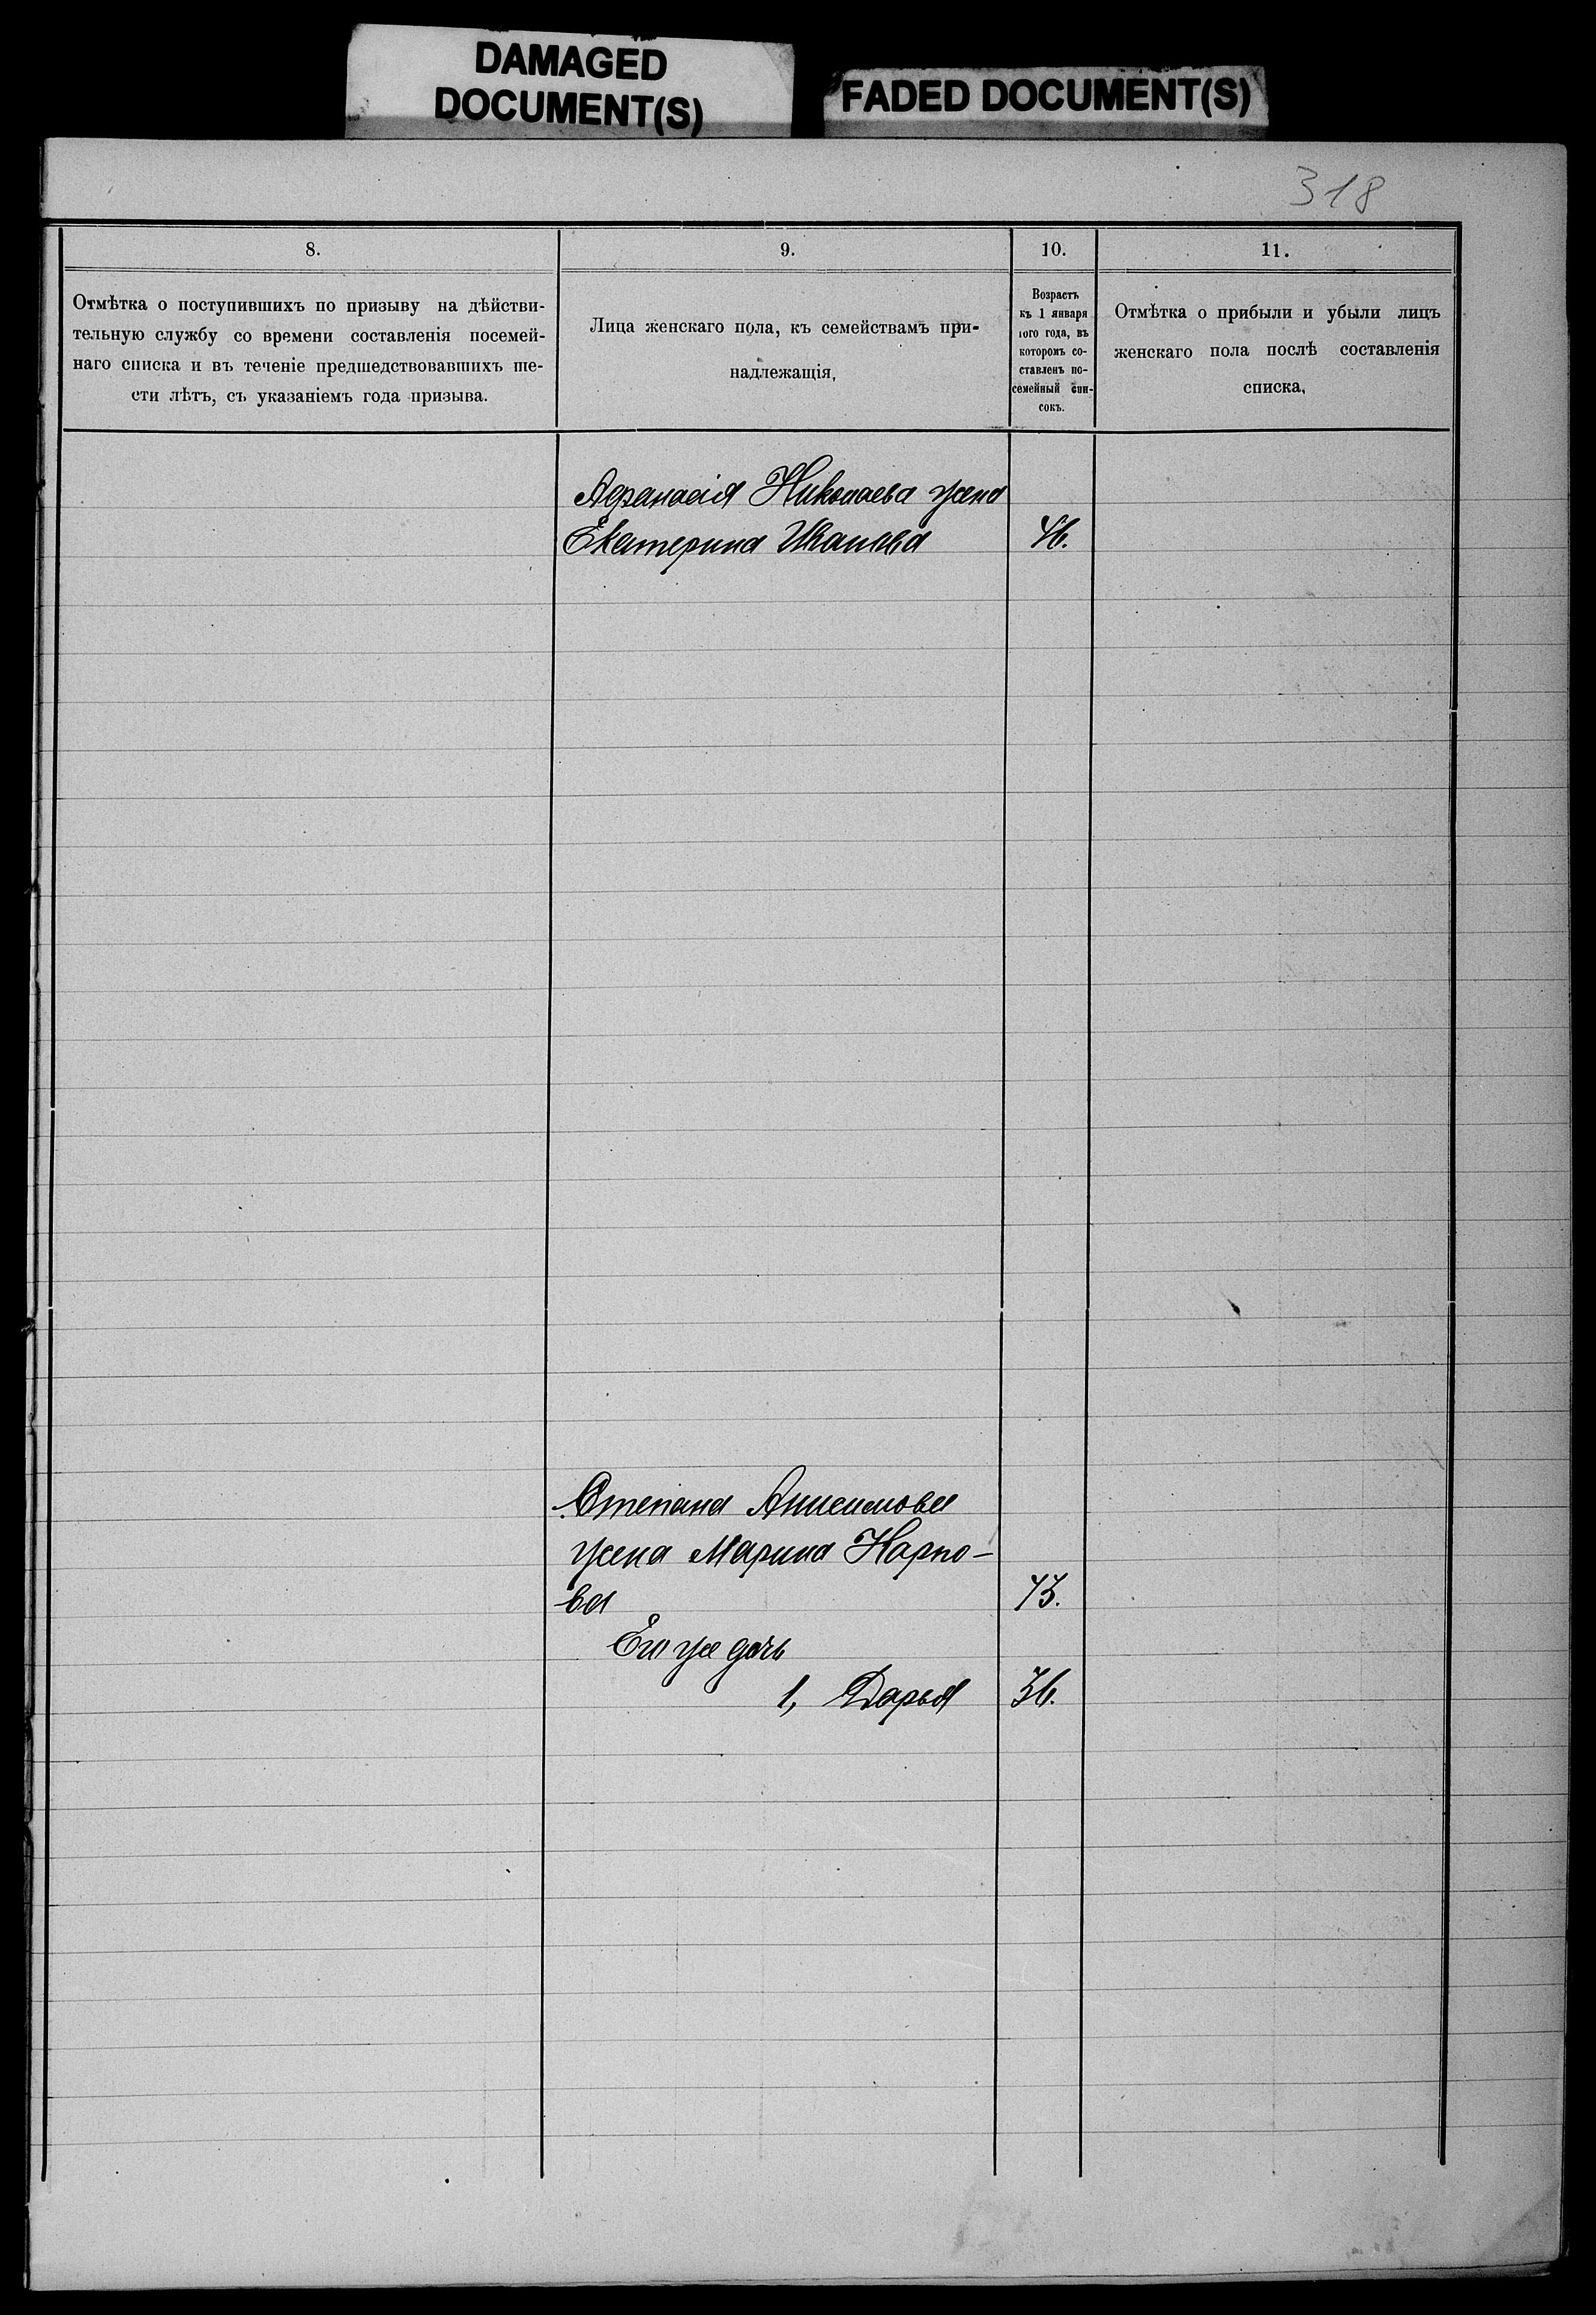 DAMAGED
DOCUMENT(S)
FADED DOCUMENT(S)
318
8.
9.
10.
11.
Отмѣтка о поступившихъ по призыву на дѣйстви-
тельную службу со времени составленія посемей-
наго списка и въ теченіе предшедствовавшихъ ше-
сти лѣтъ, съ указаніемъ года призыва.
Лица женскаго пола, къ семействамъ при-
надлежащія,
Возрастъ
къ 1 января
того года, въ
которомъ со-
ставленъ по-
семейный спи-
сокъ.
Отмѣтка о прибыли и убыли лицъ
женскаго пола послѣ составленія
списка,
Афанасія Николаева жена
Екатерина Иванова 46.
Степана Анисимова
жена Марина Карпо-
ва 73.
Его же дочь
1, Дарья 36.